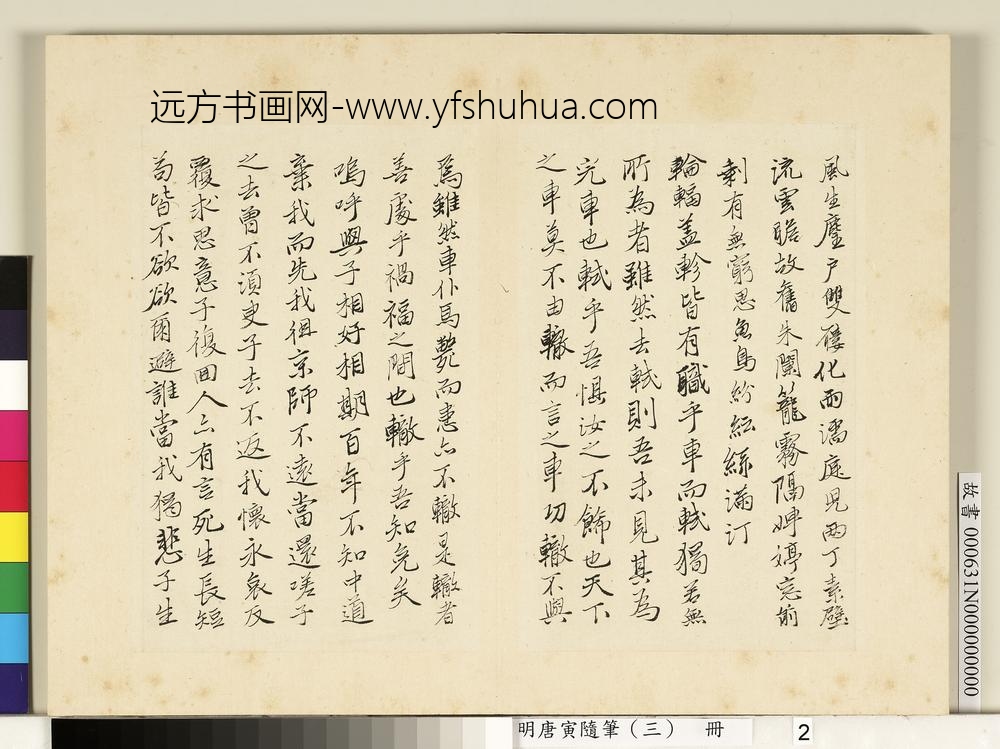 远方书画网-www.yfshuhua.com
風生塵戶雙化雨濡庭見兩丁素壁
流雲瞻故舊朱闌籠霧隔娉婷忘前
剩有無窮思魚鳥紛紜絲滿汀
輪輻蓋軫皆有職乎車而軾獨若無
所為者雖然去軾則吾未見其為
完車也軾乎吾懼汝之不飾也天下
之車莫不由轍而言之車功轍不與
焉雖然車仆馬斃而患亦不轍是轍者
善處乎禍福之間也轍乎吾知免矣
嗚呼與子相好相期百年不知中道
棄我而先我徂京師不遠當還嗟子
之去曾不須臾子去不返我懷永哀反
覆求思意子復回人亦有言死生長短
苟皆不欲欲爾避誰當我獨悲子生
故書 000631N000000000
明唐寅隨筆（三） 冊 2